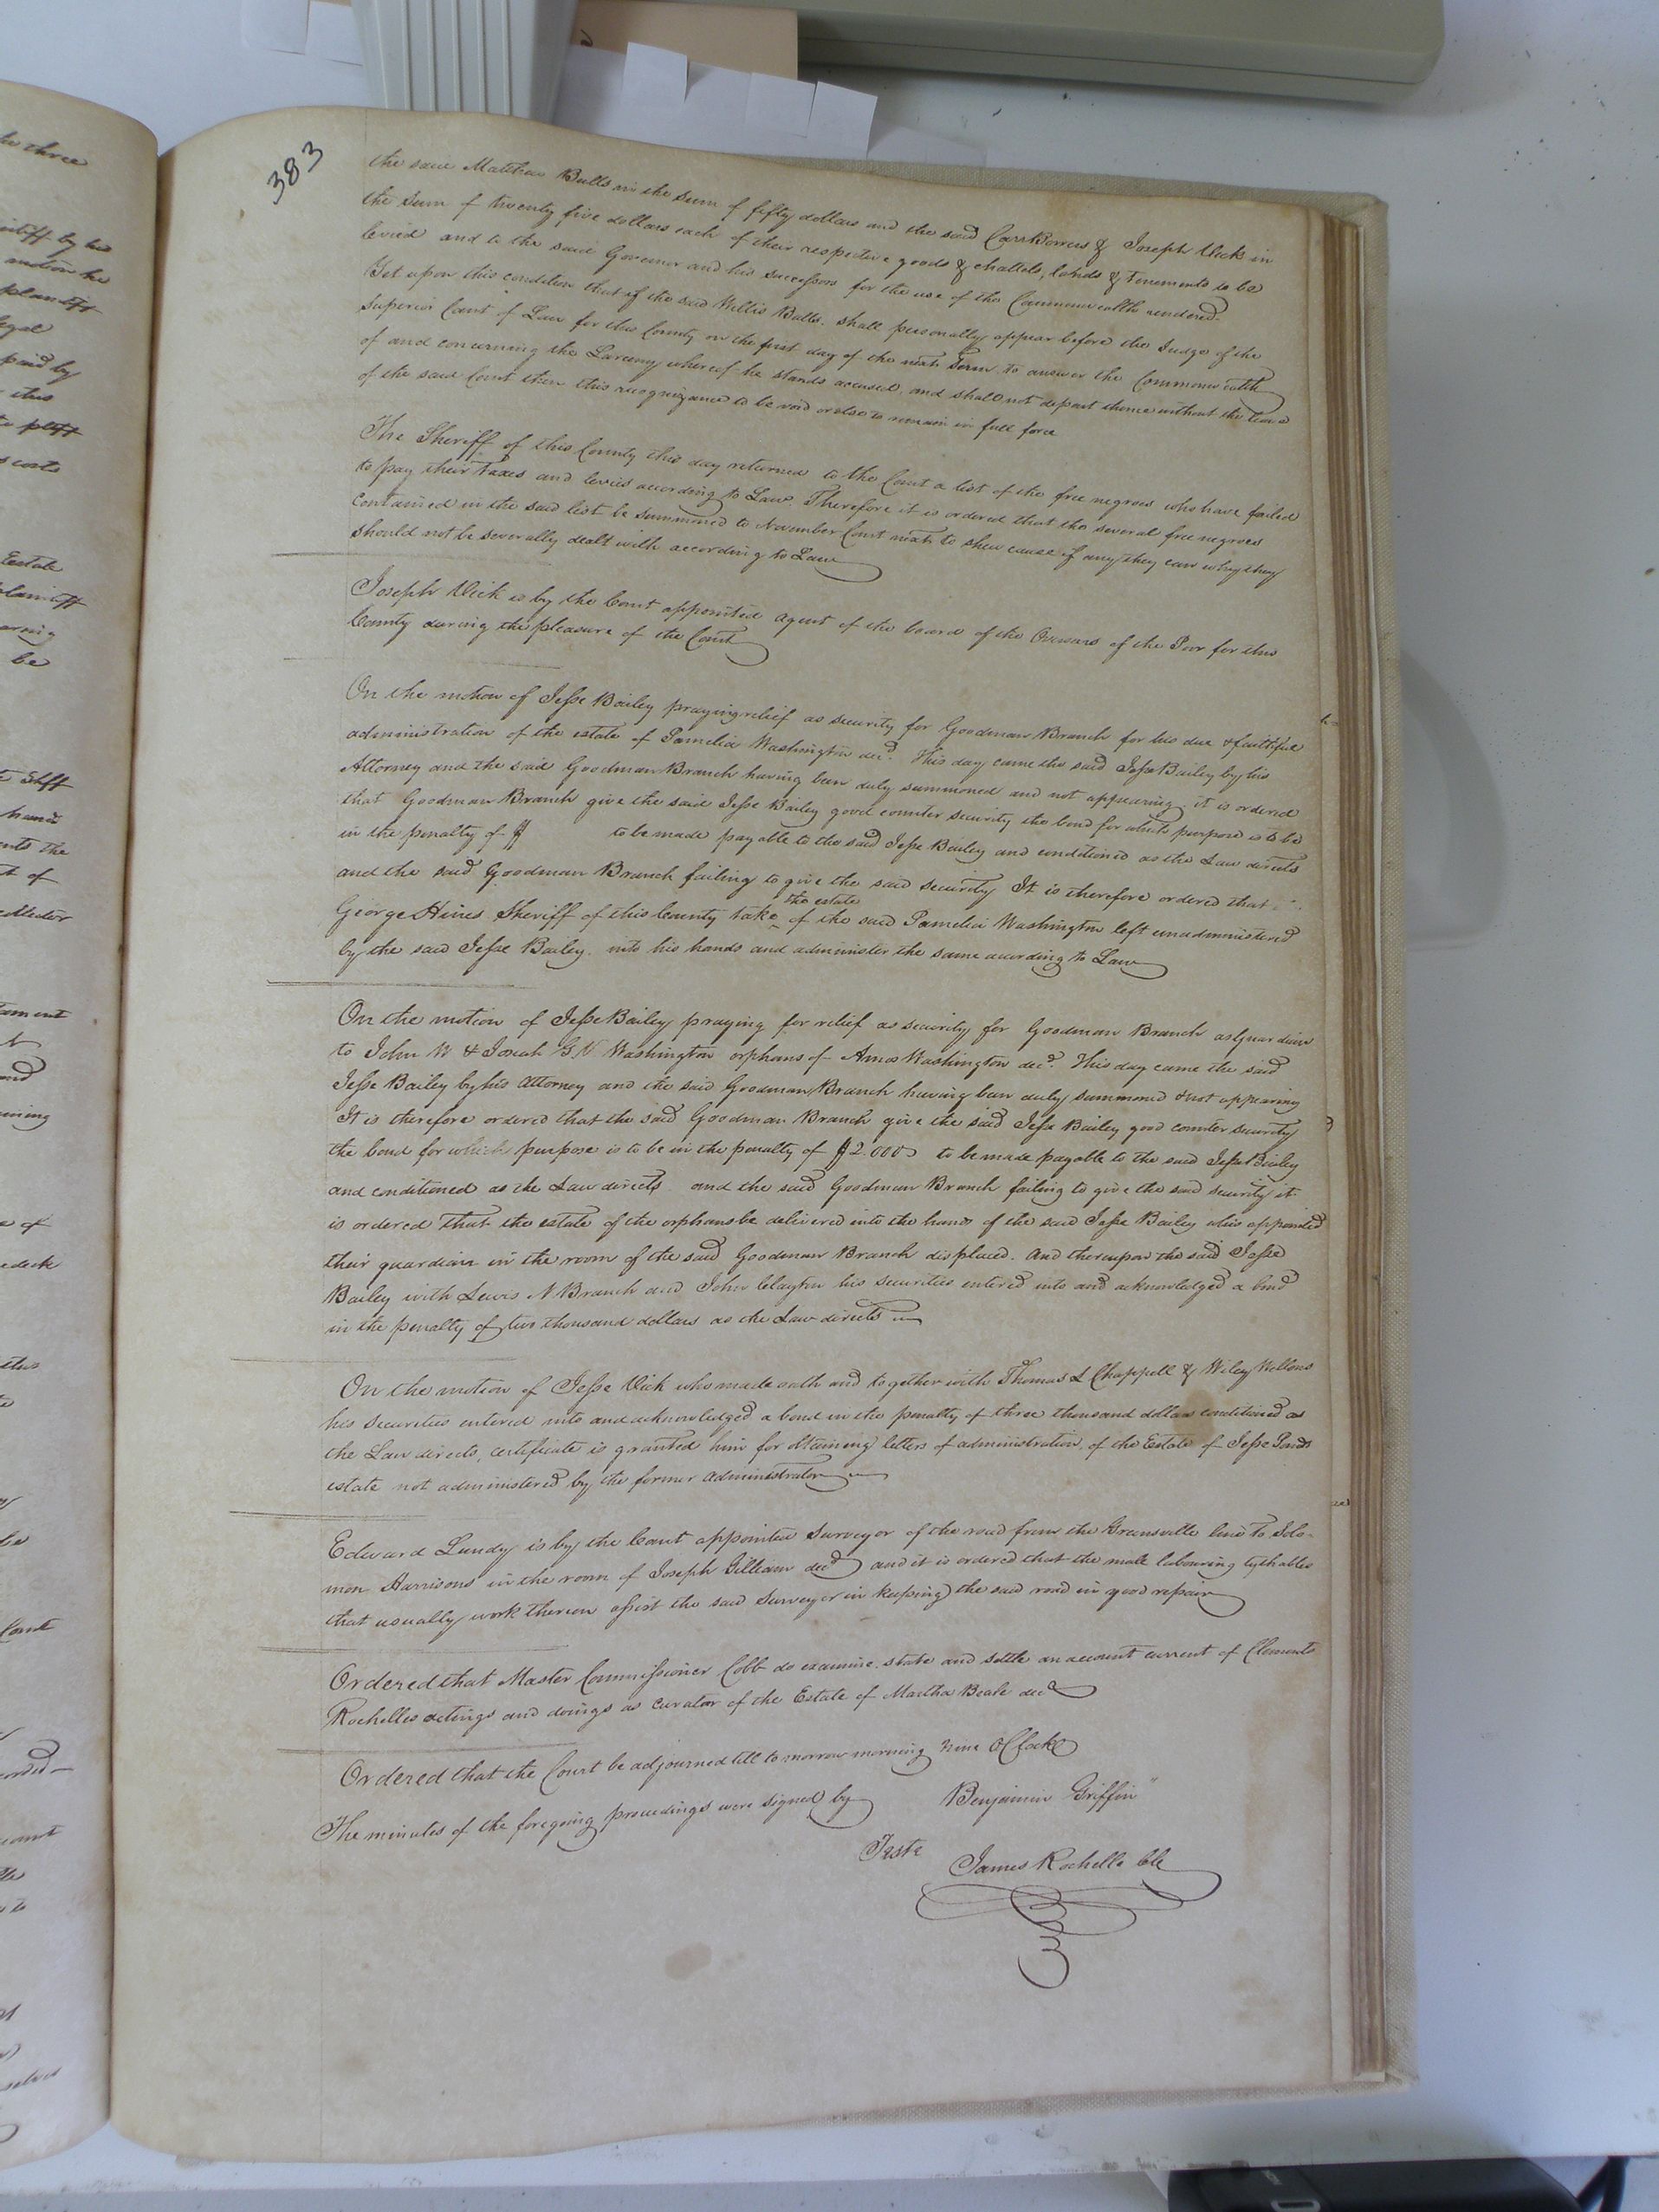 383
the said Matthew Bulls in the sum of fifty dollars and the said Carr Bowers & Joseph Vick in
the sum of twenty five dollars each of their respective goods & chattels, lands & tenements to be
levied and to the said Governor and his successors for the use of the Commonwealth rendered.
Yet upon this condition that if the said Willis Bulls shall personally appear before the Judge of the
Superior Court of Law for this County on the first day of the next Term to answer the Commonwealth
of and concerning the Larceny whereof he stands accused, and shall not depart thence without the leave
of the said Court then this recognizance to be void or else to remain in full force
The Sheriff of this County this day returned to the Court a list of the free negroes who have failed
to pay their taxes and levies according to Law. Therefore it is ordered that the several free negroes
contained in the said list be summoned to November Court next to shew cause if any they can why they
should not be severally dealt with according to Law
Joseph Vick is by the Court appointed agent of the board of the Overseers of the Poor for this
County during the pleasure of the Court
On the motion of Jesse Bailey praying relief as security for Goodman Branch for his due & faithful
administration of the estate of Pamelia Washington decd. This day came the said Jesse Bailey by his
Attorney and the said Goodman Branch having been duly summoned and not appearing it is ordered
that Goodman Branch give the said Jesse Bailey good counter security the bond for which purpose is to be
in the penalty of $ to be made payable to the said Jesse Bailey and conditioned as the Law directs
and the said Goodman Branch failing to give the said security It is therefore ordered that
George Hines Sheriff of this County take the estate of the said Pamelia Washington left unadministered
by the said Jesse Bailey into his hands and administer the same according to Law
On the motion of Jesse Bailey praying for relief as security for Goodman Branch as Guardian
to John W & Josiah G N Washington orphans of Amos Washington decd. This day came the said
Jesse Bailey by his Attorney and the said Goodman Branch having been duly summoned & not appearing
It is therefore ordered that the said Goodman Branch give the said Jesse Bailey good counter security
the bond for which purpose is to be in the penalty of $2.000 to be made payable to the said Jesse Bailey
and conditioned as the Law directs and the said Goodman Branch failing to give the said security it
is ordered that the estate of the orphans be delivered into the hands of the said Jesse Bailey who is appointed
their guardian in the room of the said Goodman Branch displaced. And thereupon the said Jesse
Bailey with Lewis N Branch and John Clayton his securities entered into and acknowledged a bond
in the penalty of two thousand dollars as the Law directs
On the motion of Jesse Vick who made oath and together with Thomas L Chappell & Wiley Wellons
his securities entered into and acknowledged a bond in the penalty of three thousand dollars conditioned as
the Law directs, certificate is granted him for obtaining letters of administration of the Estate of Jesse Ponds
estate not administered by the former Administrator
Edward Lundy is by the Court appointed Surveyor of the road from the Greensville line to Solo-
mon Harrisons in the room of Joseph Gilliam decd and it is ordered that the male labouring tythables
that usually work thereon assist the said Surveyor in keeping the said road in good repair
Ordered that Master Commissioner Cobb do examine state and settle an account current of Clements
Rochelles actings and doings as curator of the Estate of Martha Beale decd
Ordered that the Court be adjourned till to morrow morning nine OClock
The minutes of the foregoing proceedings were signed by Benjamin Griffin
Teste
James Rochelle Clk